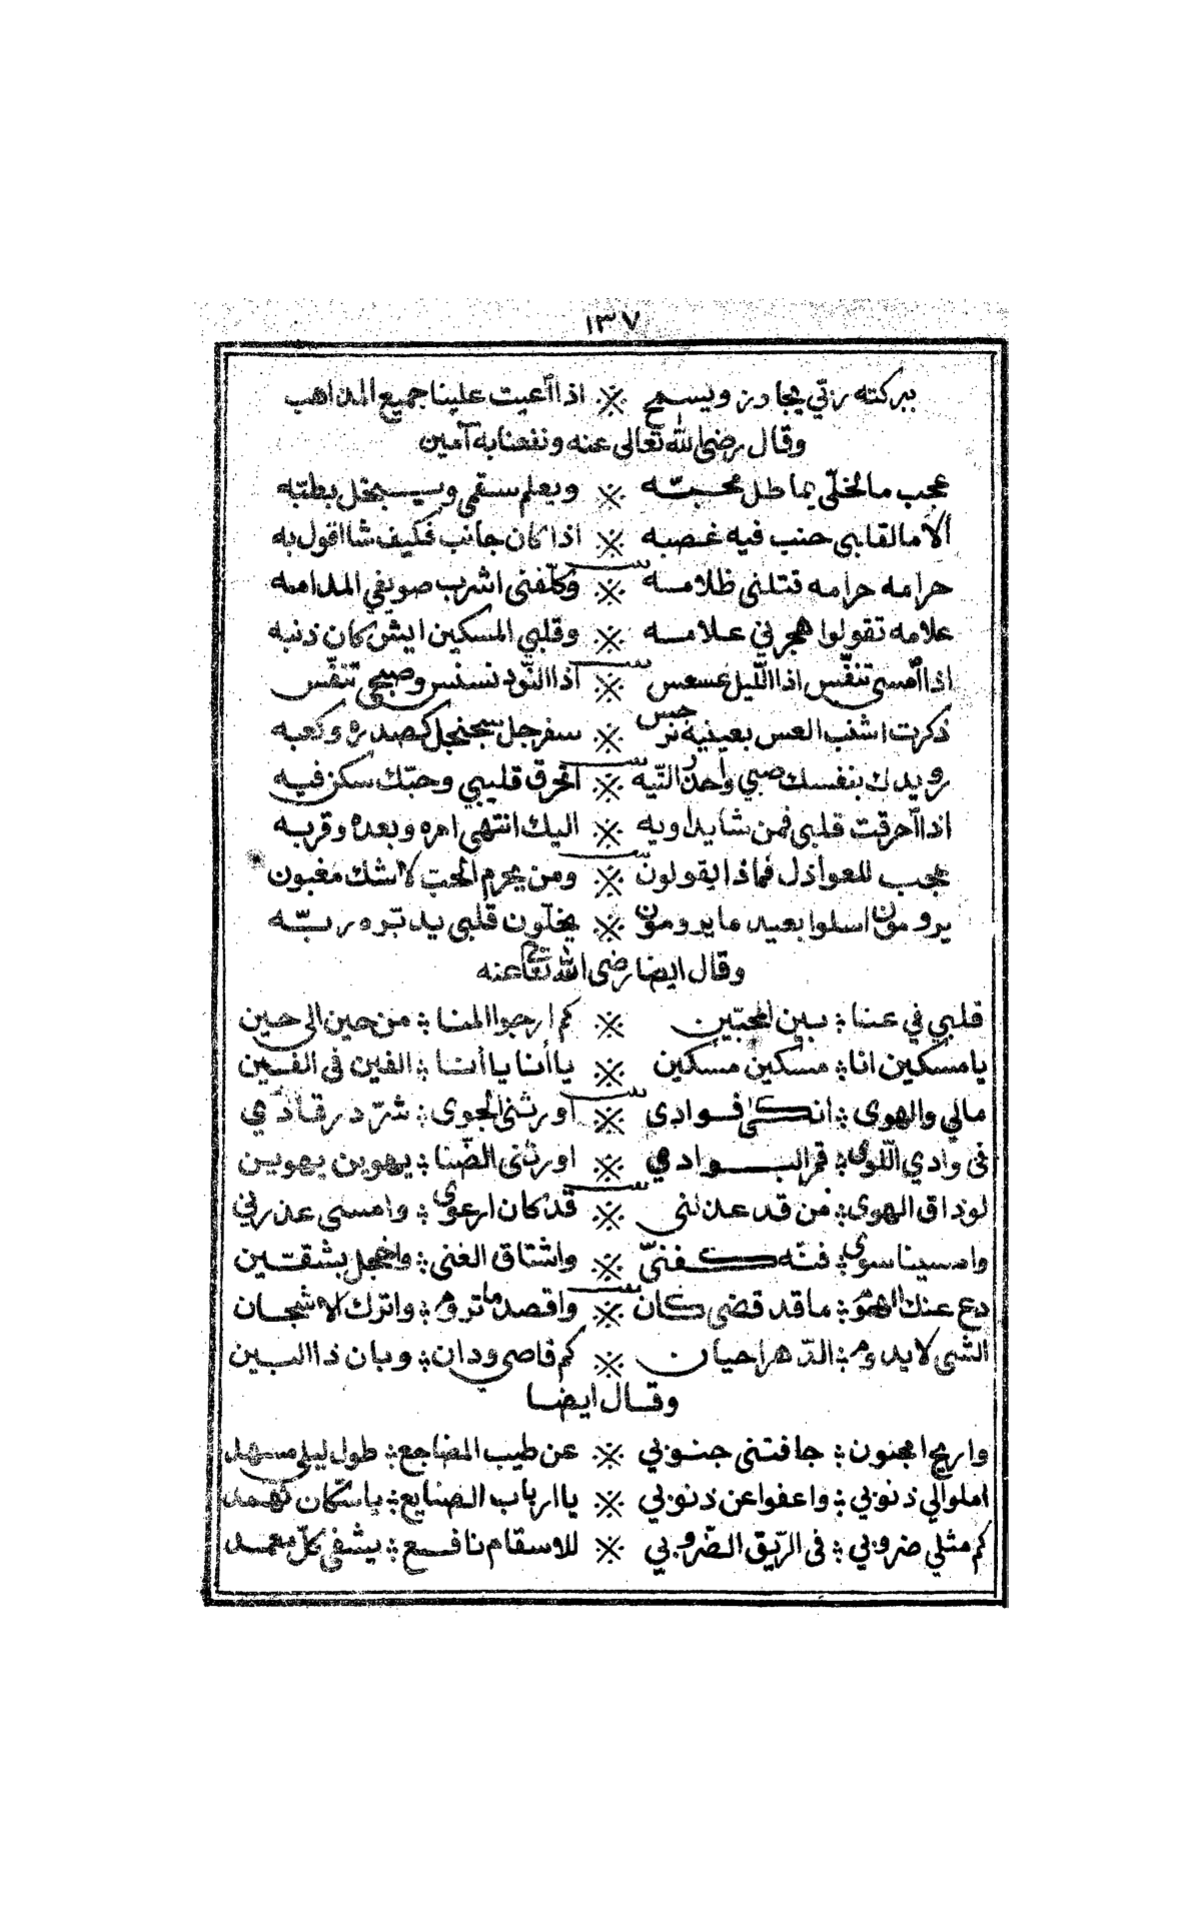 ١٣٧
ببركته ربّي يجاوز ويسمح ※ اذا أعيت علينا جميع المذاهب
وقال رضى الله تعالى عنه ونفعنا به آمين
عجب ما لخلّى بما طل محبتّه ※ ويعلم سقمى ويبخل بطبّه
الا ما لقلبى جنب فيه غصبه ※ اذا كان جانب فكيف شا اقول به
حرامه حرامه قتلنى ظلامه ※ وكلّفنى اشرب صويفي المدامه
علامه تقولوا هجرني علامه ※ وقلبي المسكين ايش كان ذنبه
اذا أمسى تنفّس اذا اللّيل عسعس ※ اذا النّود نسنس وصبحى تنفّس
ذكرت اشنب العس بعينيه نرجس ※ سفرجل سجنجل كصدره وكعبه
رويدك بنفسك صبي وأحذر التّيه ※ احرق قليبي وحبّك سكن فيه
اذا أحرقت قلبى فمن شا يداويه ※ اليك انتهى امره وبعده وقربه
عجب للعواذل فماذا يقولونّ ※ ومن يحرم الحب لا شك مغبون
يرومون اسلوا بعيد ما يرومون ※ يخلّون قلبى يدبّره ربّه
وقال ايضا رضى الله تعا عنه
قلبي في عنا ؛ بين المحبّين ※ كم ارجوا المنا ؛ من حين الى حين
يا مسكين انا ؛ مسكين مسكين ※ يا أنا يا أنا ؛ الفين فى الفين
مالي والهوى ؛ انكى فوادى ※ اورثنى الجوى ؛ شرّد رقادي
فى وادي اللّوى ؛ قمر البوادي ※ اورثنى الضّنا ؛ يهوين يهوين
لو ذاق الهوى ؛ من قد عذلنى ※ قد كان ارعوى ؛ وامسى عذرني
وامسينا سوى ؛ فنّه كفنّى ※ واشتاق الغنى ؛ واخجل بشقتين
دع عنك الهوى ؛ ما قد قضى كان ※ واقصد ما تروم ؛ واترك الاشجان
الشى لا يدوم ؛ الدّهر احيان ※ كم قاصى ودان ؛ وبان ذا البين
وقال ايضا
واريح امجنون ؛ جافتنى جنوبي ※ عن طيب المضاجع ؛ طول ليلى مسهد
املوالي ذنوبي ؛ واعفوا عن ذنوبي ※ يا ارباب الصنايع ؛
كم مثلي ضروبي ؛ فى الرّيق الضّروبي ※ للاسقام نافع ؛ يشفى كلّ معمد